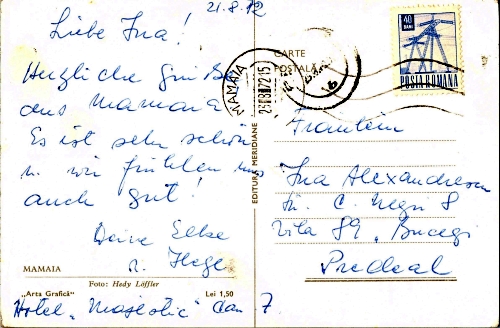 21.8.72
Liebe Ina!
Herzliche Grüße
aus Mamaia
Es ist sehr schön
u. wir fühlen uns
auch gut!
Deine Elke
u. Helge
MAMAIA
Foto: Hedy Löffler
„Arta Grafică”
Lei 1,50
Hotel „Majestic” Cam 7
EDITURA MERIDIANE
CARTE
POSTALĂ
MAMAIA
40
BANI
POSTA ROMANA
Fräulein
Ina Alexandrescu
Str. C. Negri 8
Vila 89 „Bucegi
Predeal